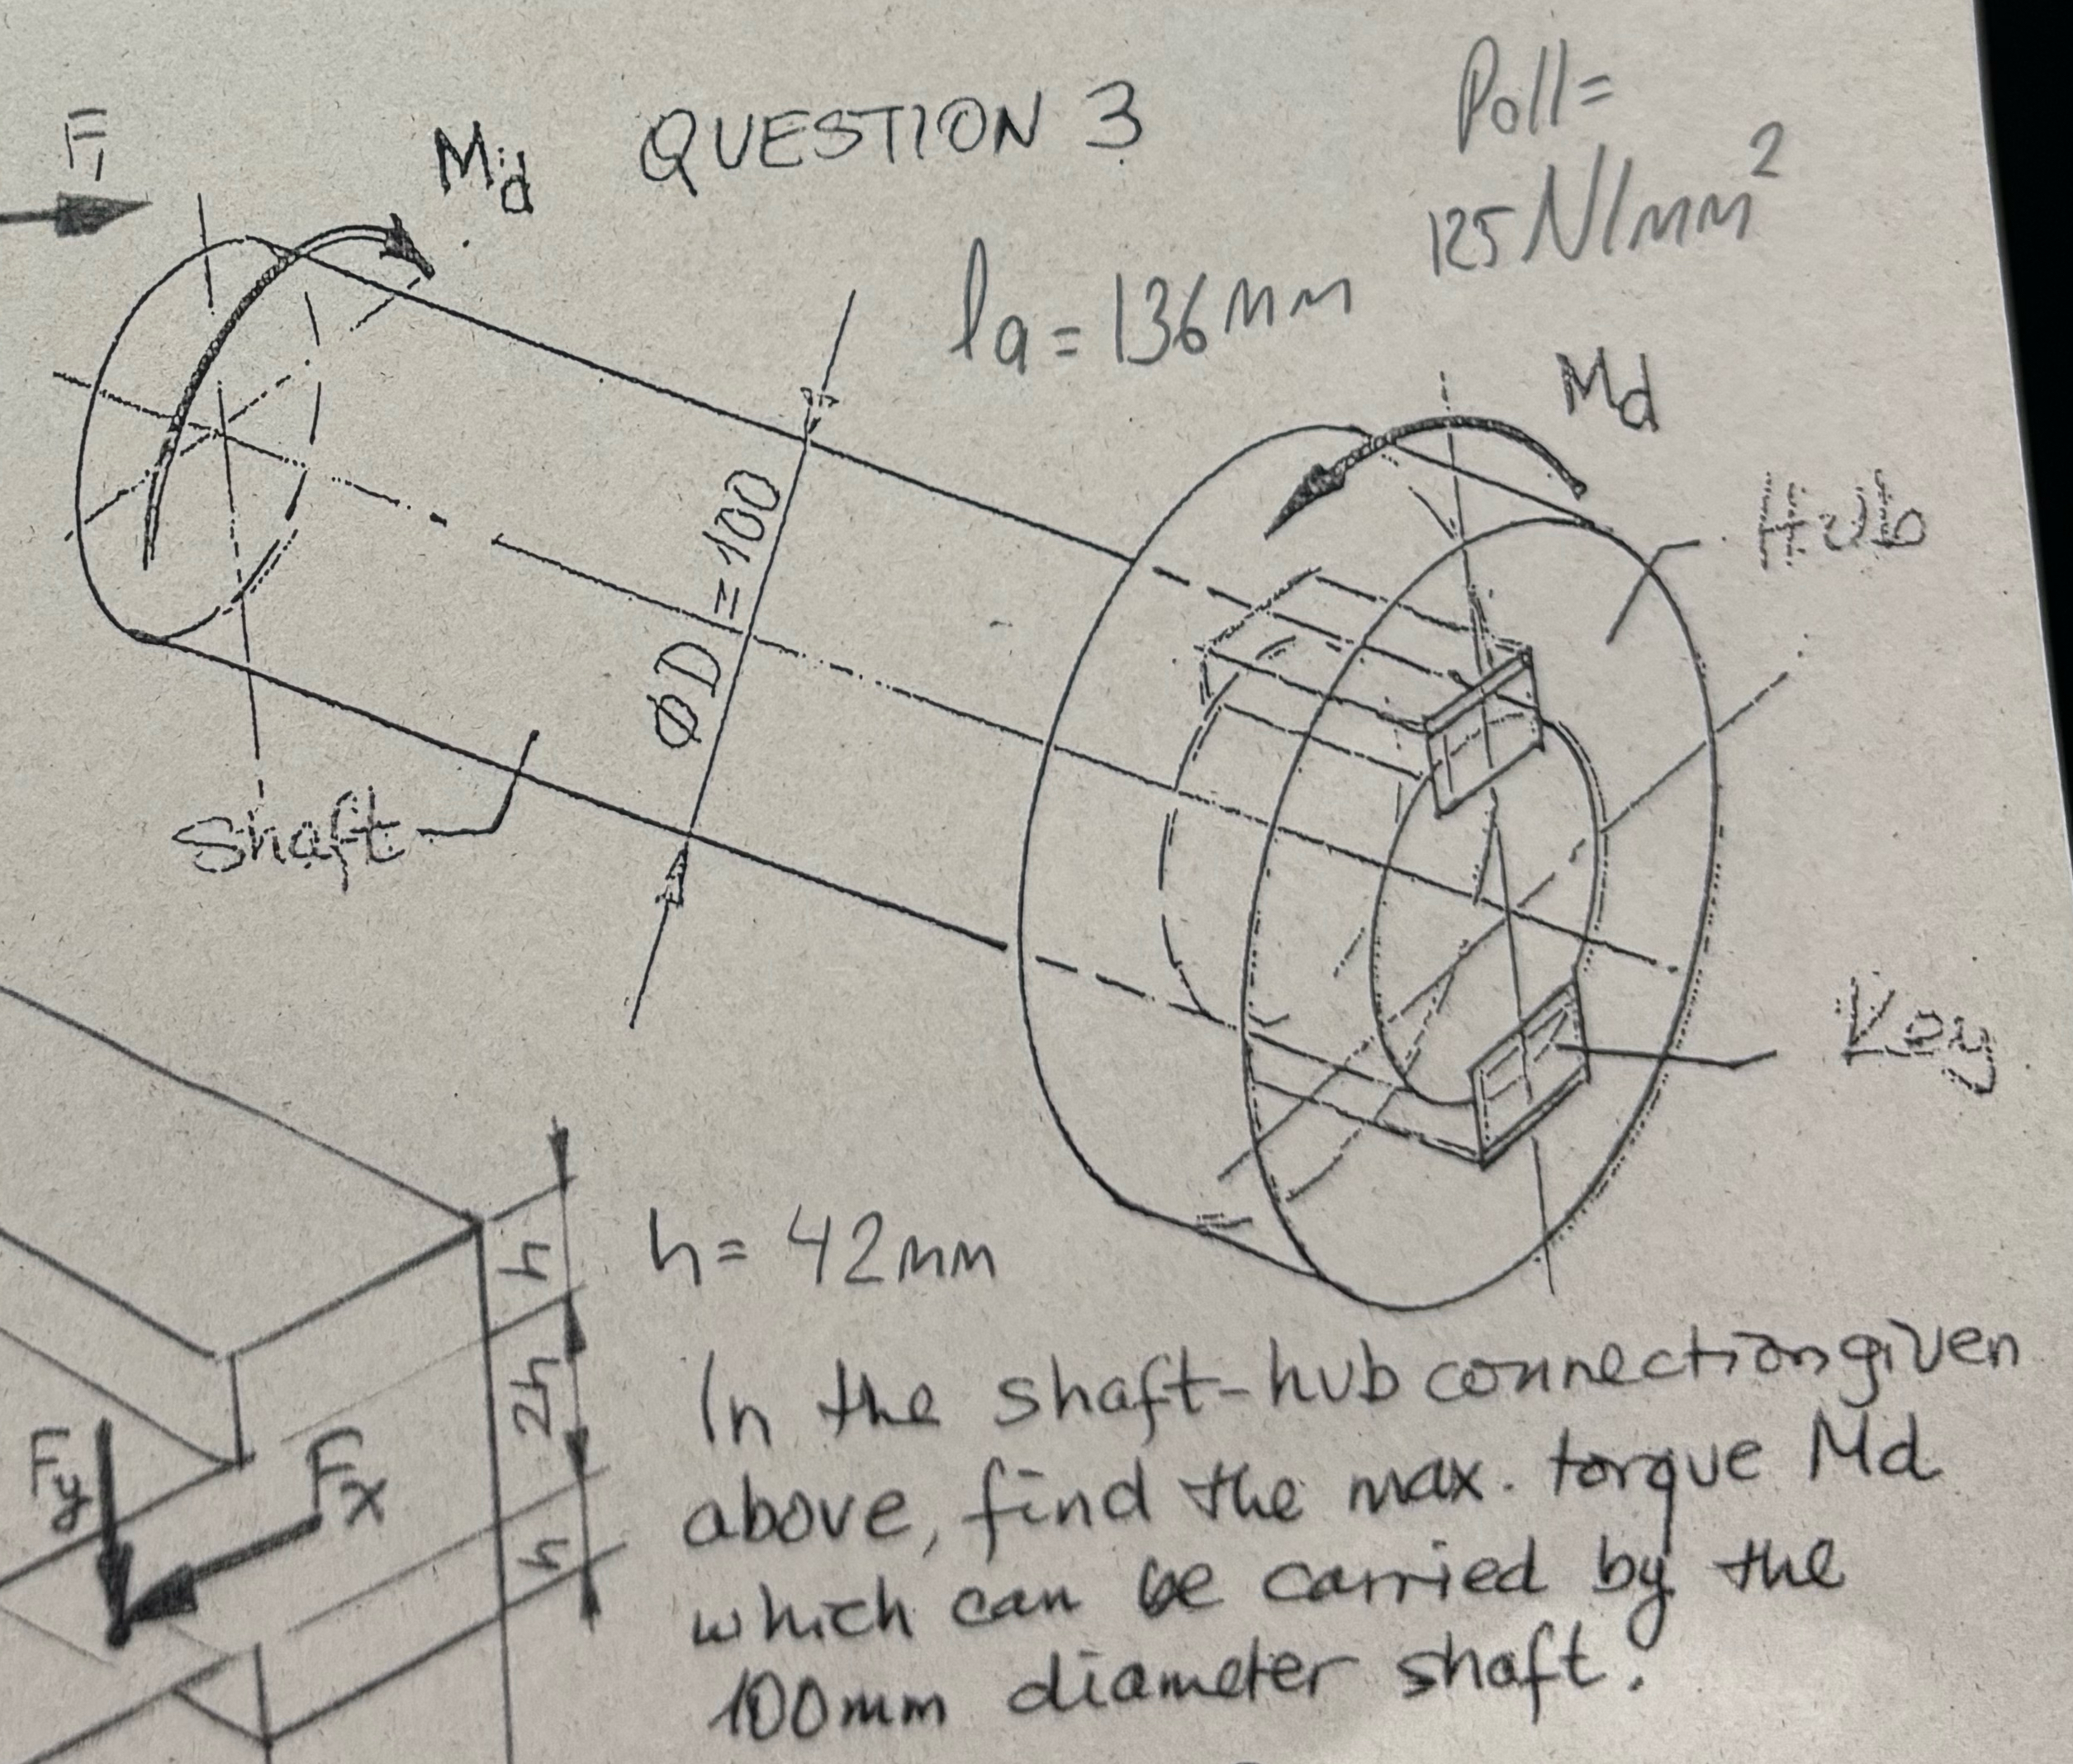 QUESTION 3
Poll=
125 N/mm²
F₁
Md
la = 136 mm
Md
Hub
ØD = 100
shaft
Key
h
2h
h
h = 42 mm
Fy
Fx
In the shaft-hub connection given
above, find the max. torque Md
which can be carried by the
100mm diameter shaft.